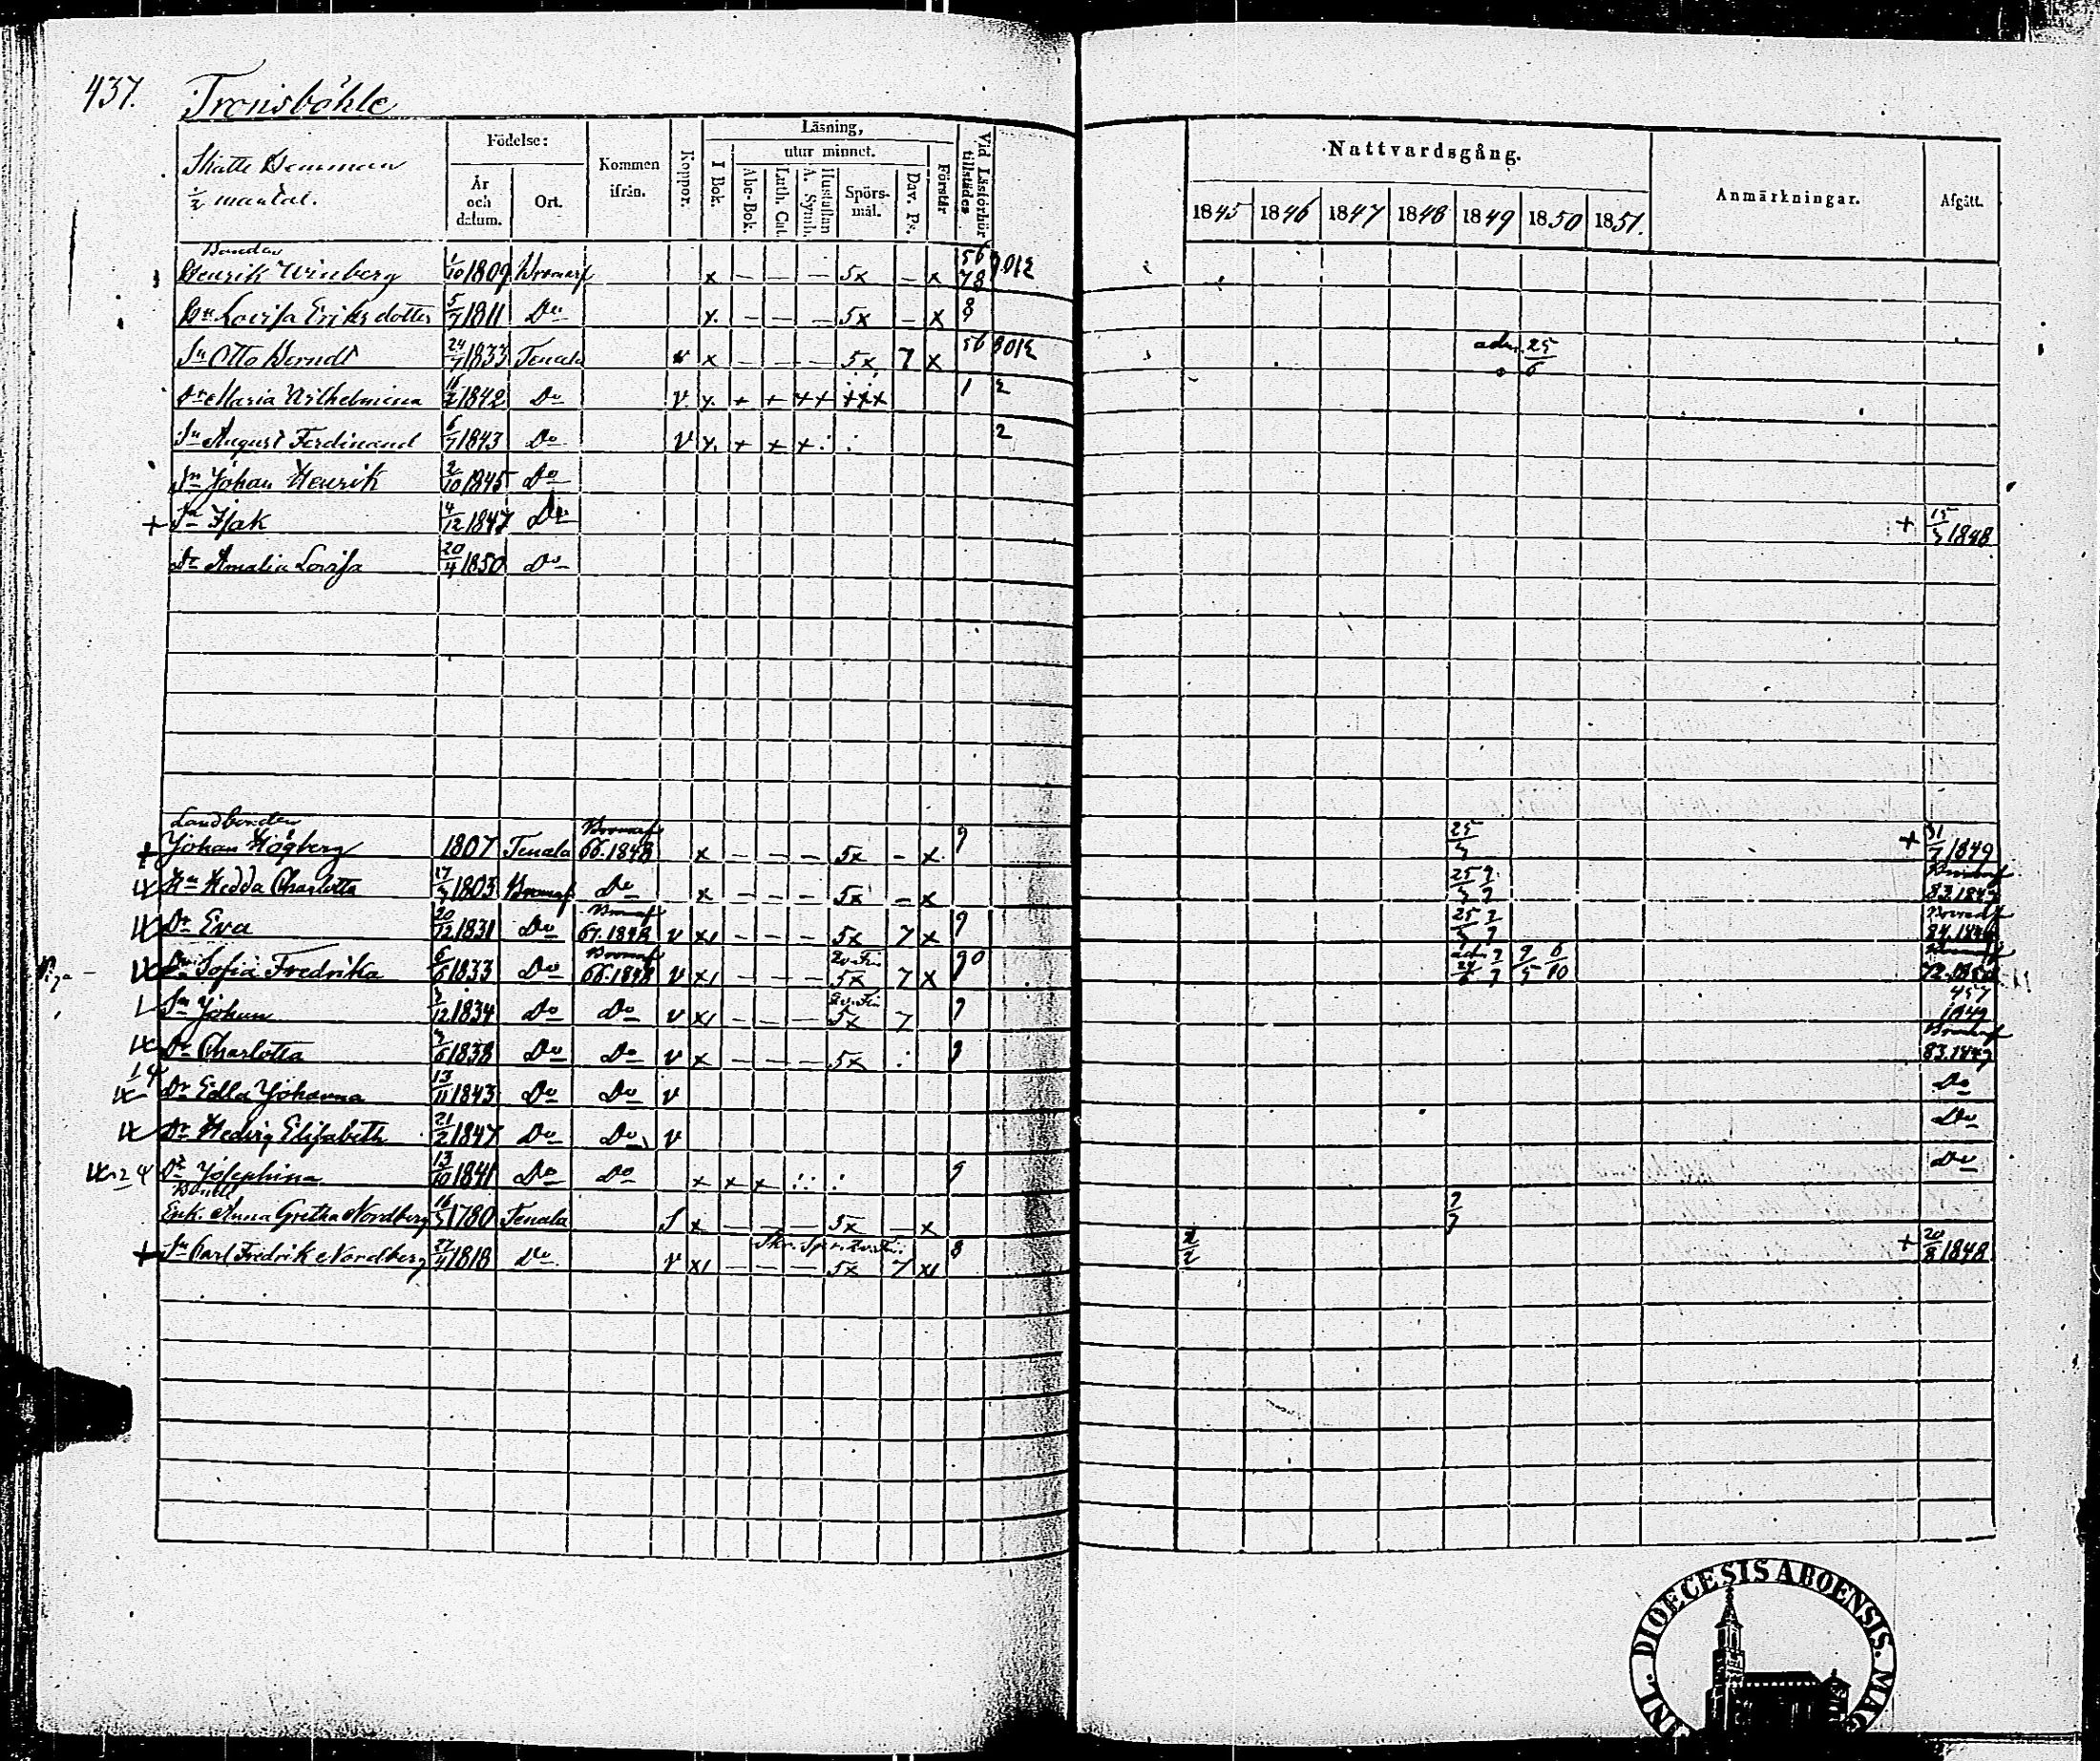 437. Tronsböhle
Skatte Hemman
1/2 mantal.
Födelse:
År och datum.
Ort.
Kommen ifrån.
Koppor.
Läsning,
utur minnet.
I Bok.
Abc-Bok.
Luth. Cat.
Hustaflan A. Symb.
Spörs-mål.
Dav. Ps.
Förstår
Vid Läsförhör tillstädes
Nattvardsgång.
1845 1846 1847 1848 1849 1850 1851.
Anmärkningar.
Afgått.
Bonden
Henrik Winberg 1/10 1809 Bromarf x — — — 5x — x 56 78
Hu Lovisa Eriksdotter 5/7 1811 Do x — — — 5x — x 8
Sn Otto Berndt 24/7 1833 Tenala v x — — — 5x 7 x 56 adm. 25/6
Dr Maria Wilhelmina 1842 Do v x + + ++ 1 2
Sn August Ferdinand 6/7 1843 Do v x + + + 2
Sn Johan Henrik 2/10 1845 Do
+ Sn Isak 4/12 1847 Do + 15/5 1848
Dr Amalia Lovisa 20/4 1850 Do
Landbonden
+ Johan Högberg 1807 Tenala Bromarf 66.1848 x — — — 5x — x 9 25/5 + 31/7 1849
Hu Hedda Charlotta 1803 Bromarf Do x — — — 5x — x Bromarf 83.1849
Dr Eva 20/12 1831 Do Bromarf 67.1848 v x1 — — — 5x 7 x 9 Bromarf 84.1849
Dr Sofia Fredrika 6/6 1833 Do Bromarf 66.1848 v x1 — — — 5x 7 x 90 72.1850
Sn Johan 1834 Do Do v x1 — — — 5x 7 9 457 1849
Dr Charlotta 1838 Do Do v x — — — 5x 9 Bromarf 83.1849
Dr Edla Johanna 13/11 1843 Do Do v Do
Dr Hedvig Elisabeth 21/2 1847 Do Do v Do
Dr Josephina 13/10 1841 Do Do x x x 9 Do
Enk. Anna Gretha Nordberg 16/5 1780 Tenala x — — — 5x — x
+ Sn Carl Fredrik Nordberg 1818 Do v x1 — — — 5x 7 x1 8 + 20/8 1848
DIOECESIS ABOENSIS. MAG